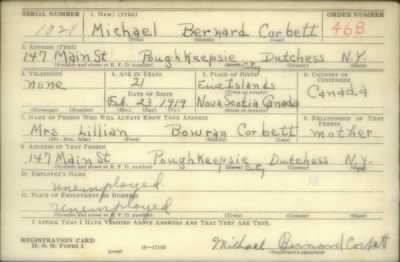 SERIAL NUMBER 1. NAME (Print) ORDER NUMBER
1021 Michael Bernard Corbett 468
(First) (Middle) (Last)
2. ADDRESS (Print)
147 Main St Poughkeepsie Dutchess N.Y.
(Number and street or R. F. D. number) (Town) City (County) (State)
3. TELEPHONE 4. AGE IN YEARS 5. PLACE OF BIRTH 6. COUNTRY OF CITIZENSHIP
none 21 Five Islands Canada
DATE OF BIRTH (Town or county)
Feb. 23 1919 Nova Scotia Canada
(Exchange) (Number) (Mo.) (Day) (Yr.) (State or country)
7. NAME OF PERSON WHO WILL ALWAYS KNOW YOUR ADDRESS 8. RELATIONSHIP OF THAT PERSON
Mrs Lillian Bowran Corbett mother
(Mr., Mrs., Miss) (First) (Middle) (Last)
9. ADDRESS OF THAT PERSON
147 Main St Poughkeepsie Dutchess N.Y.
(Number and street or R. F. D. number) (Town) City (County) (State)
10. EMPLOYER'S NAME
unemployed
11. PLACE OF EMPLOYMENT OR BUSINESS
Unemployed
(Number and street or R. F. D. number) (Town) (County) (State)
I AFFIRM THAT I HAVE VERIFIED ABOVE ANSWERS AND THAT THEY ARE TRUE.
REGISTRATION CARD
D. S. S. Form 1 (over) 16—17105 Michael Bernard Corbett
(Registrant's signature)